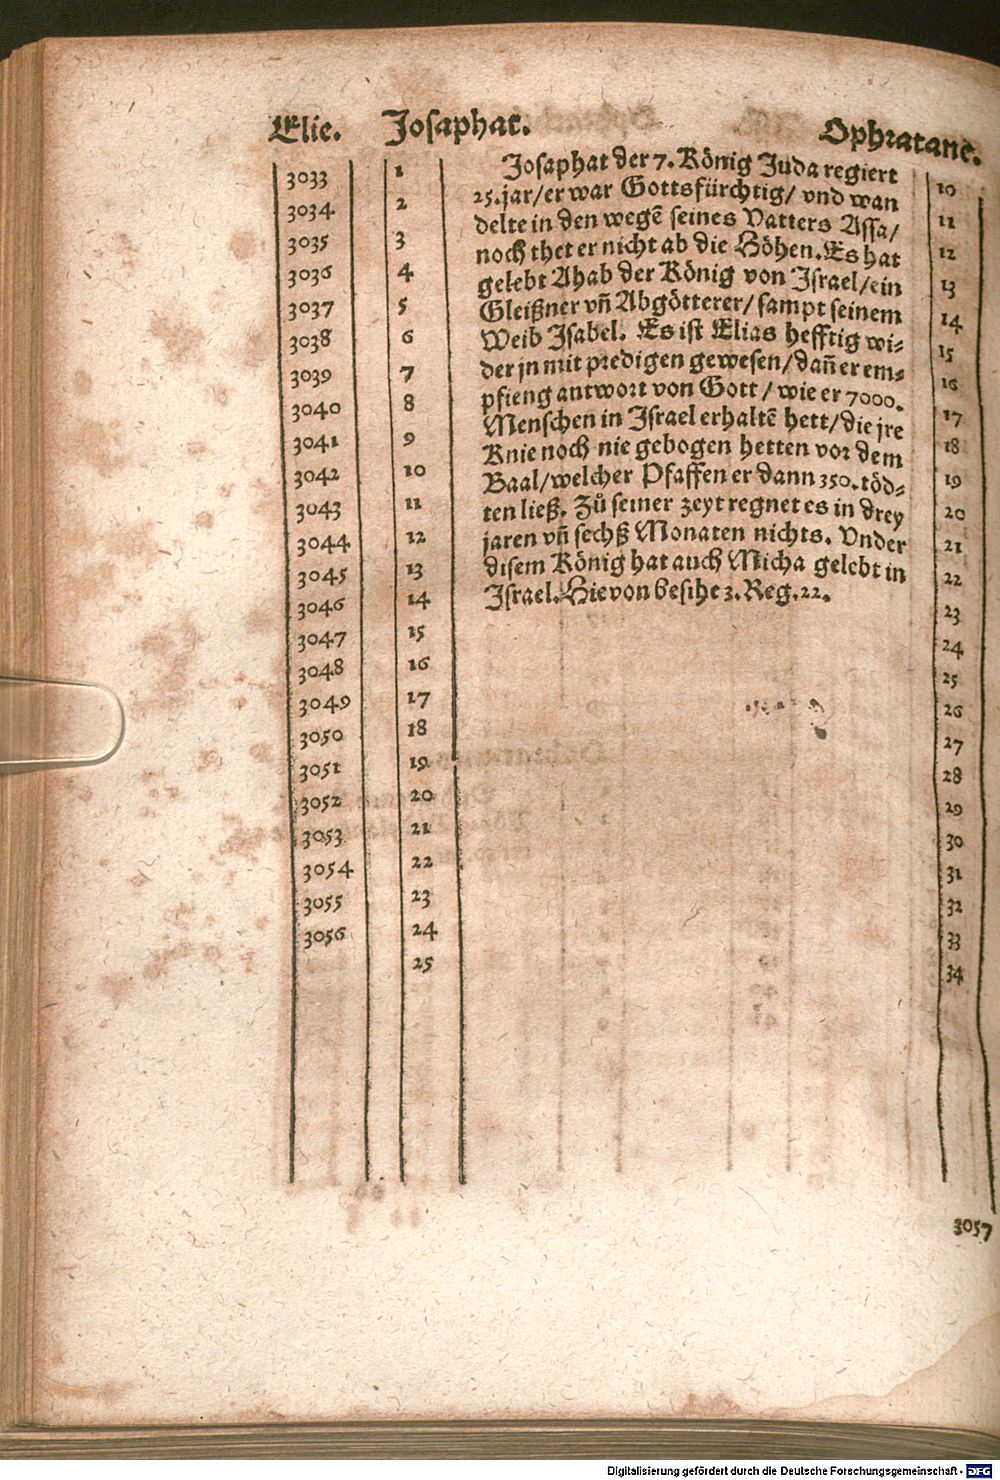 Elie. Josaphat. Ophratane.
3033 1 Josaphat der 7. König Juda regiert 10
3034 2 25. jar/ er war Gottsfürchtig/ vnd wan 11
3035 3 delte in den wegẽ seines Vatters Assa/ 12
3036 4 noch thet er nicht ab die Höhen. Es hat 13
3037 5 gelebt Ahab der König von Israel/ ein 14
3038 6 Gleißner vñ Abgötterer/ sampt seinem 15
3039 7 Weib Isabel. Es ist Elias hefftig wi⸗ 16
3040 8 der jn mit predigen gewesen/ dañ er em⸗ 17
3041 9 pfieng antwort von Gott/ wie er 7000. 18
3042 10 Menschen in Israel erhaltẽ hett/ die jre 19
3043 11 Knie noch nie gebogen hetten vor dem 20
3044 12 Baal/ welcher Pfaffen er dann 350. töd⸗ 21
3045 13 ten ließ. Zů seiner zeyt regnet es in drey 22
3046 14 jaren vñ sechß Monaten nichts. Vnder 23
3047 15 disem König hat auch Micha gelebt in 24
3048 16 Israel. Hievon besihe 3. Reg. 22. 25
3049 17 26
3050 18 27
3051 19 28
3052 20 29
3053 21 30
3054 22 31
3055 23 32
3056 24 33
25 34
3057
Digitalisierung gefördert durch die Deutsche Forschungsgemeinschaft - DFG